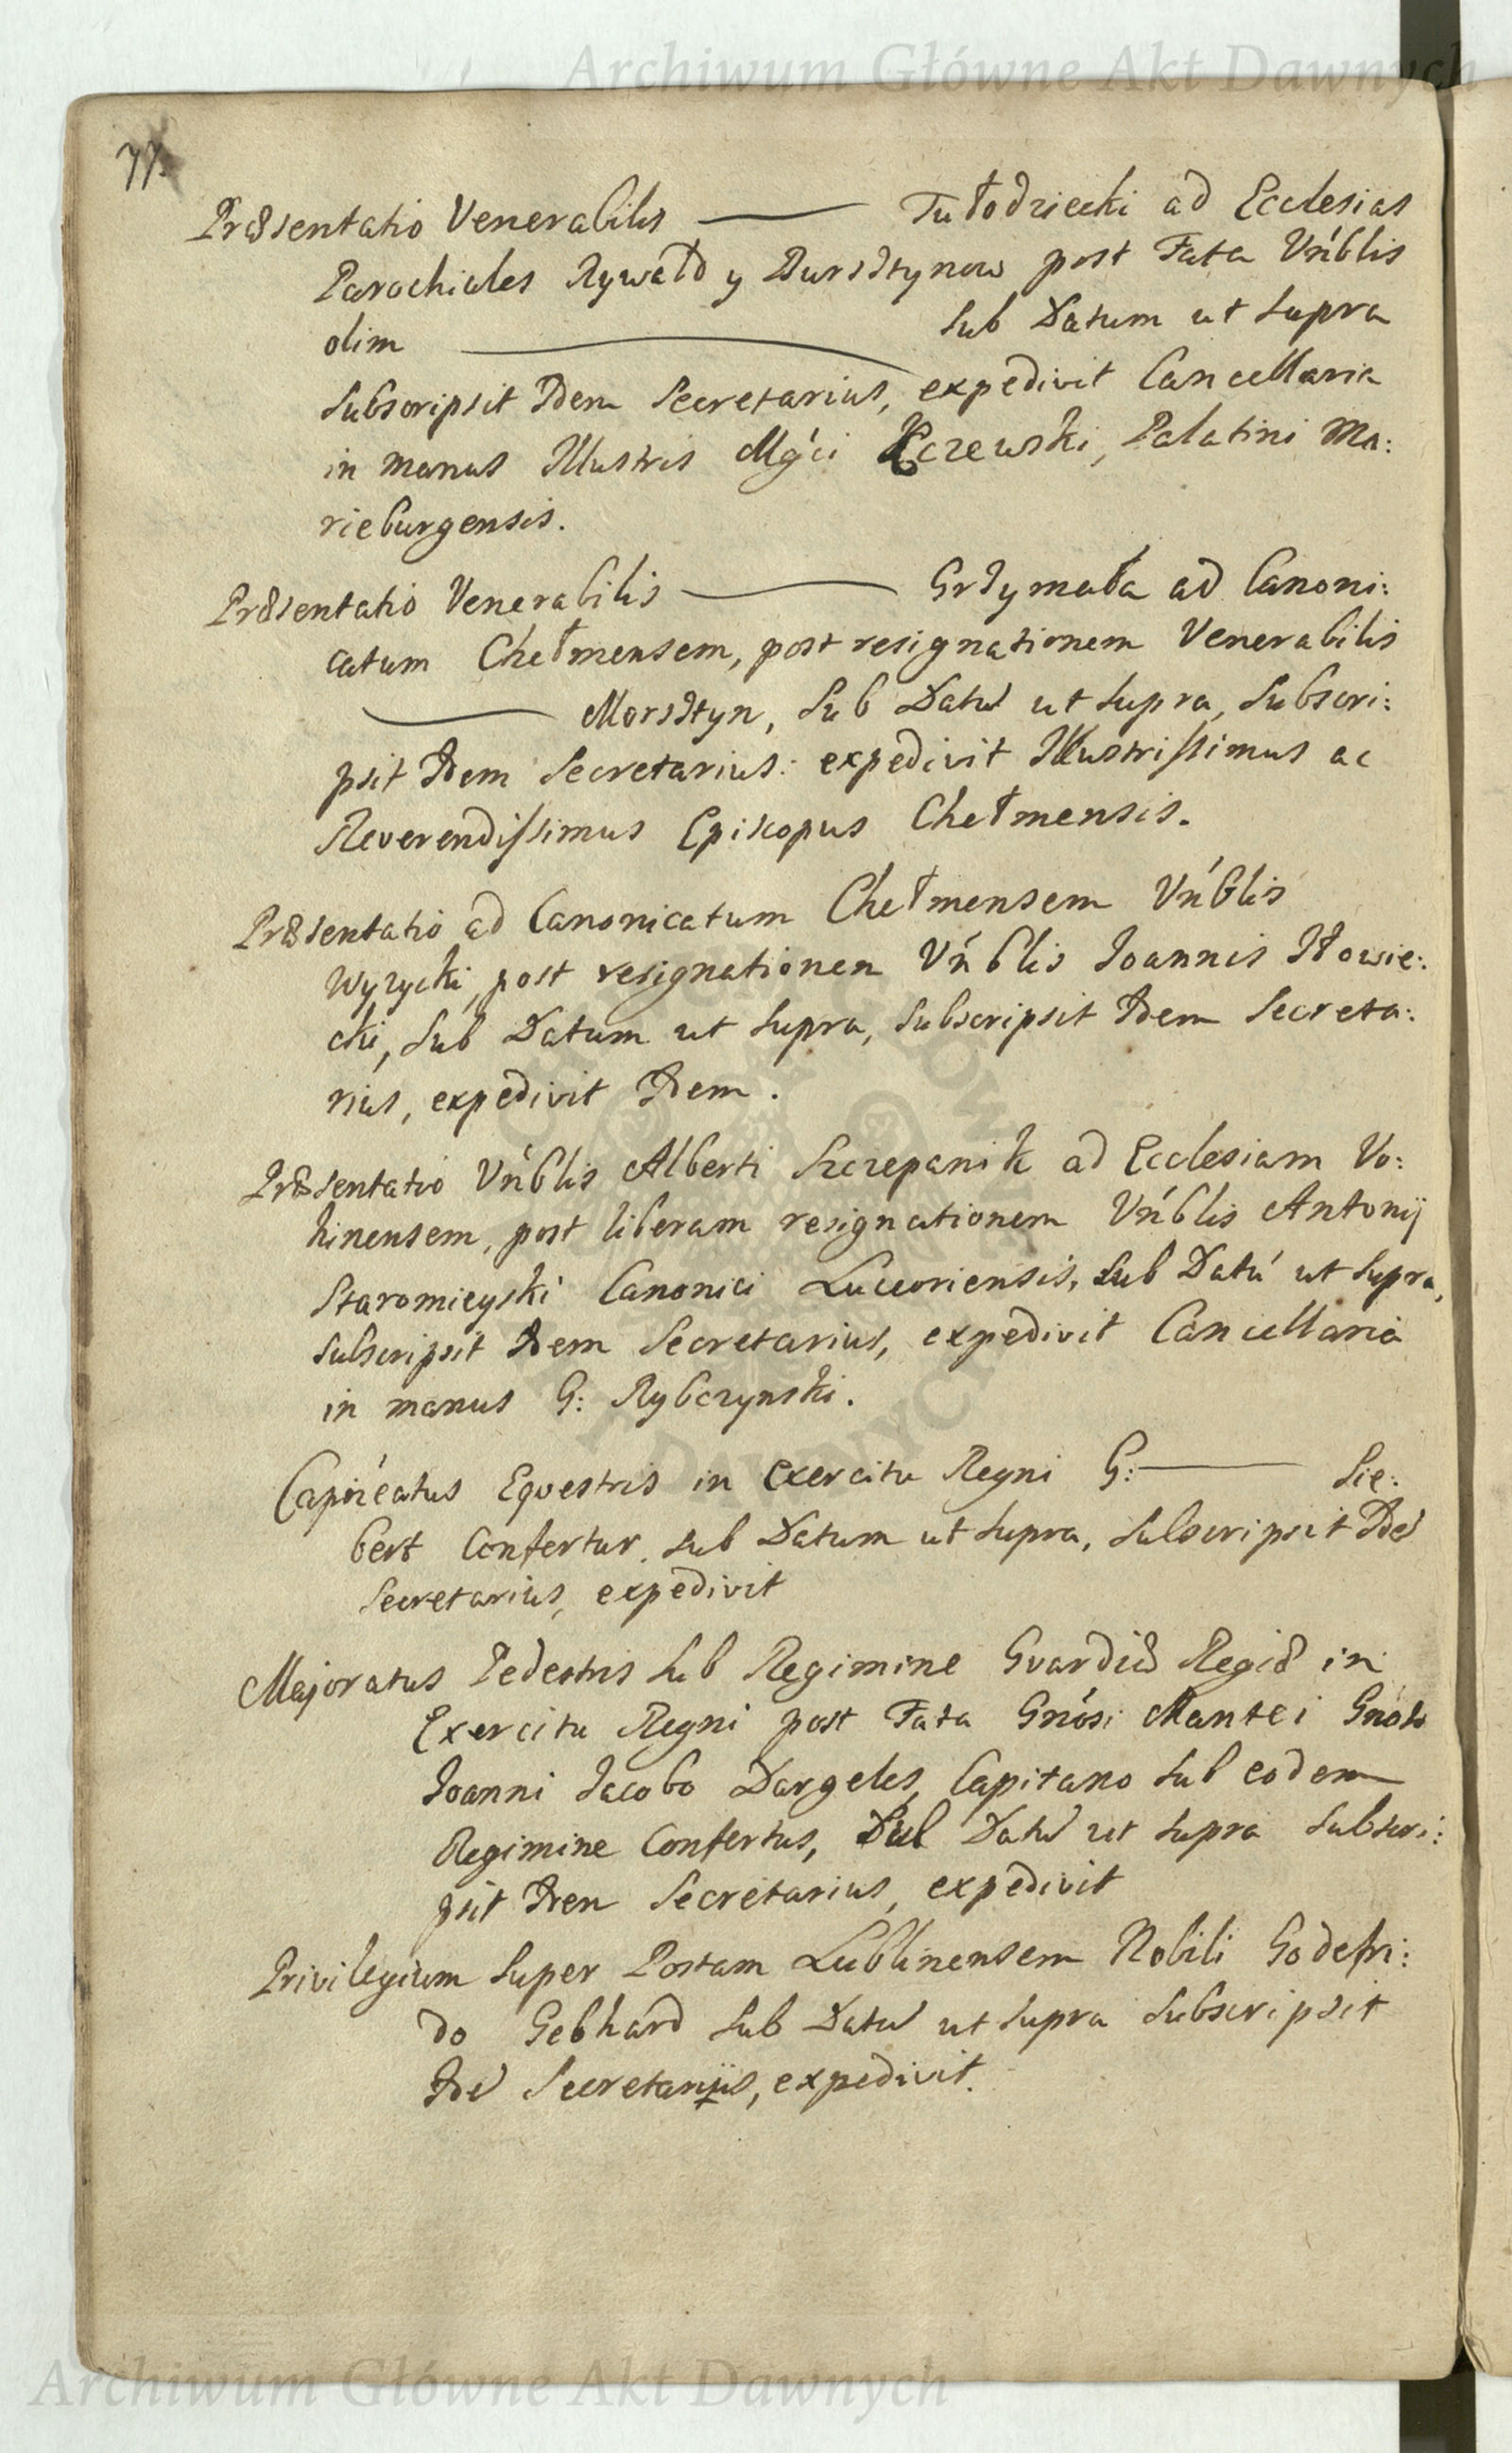 Archiwum Główne Akt Dawnych
77.
Præsentatio Venerabilis ——— Tułodziecki ad Ecclesias
Parochiales Rywałd y Bursztynow post Fata Vńblis
olim ——— sub Datum ut supra
subscripsit Idem Secretarius, expedivit Cancellaria
in manus Illustris Mg̃ci Kczewski, Palatini Ma:
rieburgensis.
Præsentatio Venerabilis ——— Grzymała ad Canoni:
catum Chełmensem, post resignationem Venerabilis
——— Morsztyn, sub Datũ ut supra, subscri:
psit Idem Secretarius: expedivit Illustrissimus ac
Reverendissimus Episcopus Chełmensis.
Præsentatio ad Canonicatum Chełmensem Vńblis
Wyzycki, post resignationem Vńblis Joannis Iłowie:
cki, sub Datum ut supra, subscripsit Idem Secreta:
rius, expedivit Idem.
Præsentatio Vńblis Alberti Szczepanik ad Ecclesiam Vo:
hinensem, post liberam resignationem Vńblis Antonij
Staromieyski Canonici Luceoriensis, sub Datũ ut supra,
subscripsit Idem Secretarius, expedivit Cancellaria
in manus G: Rybczynski.
Capiteatus Equestris in Exercitu Regni G: ——— Sie:
bert Confertur, sub Datum ut supra, subscripsit Idẽ
Secretarius, expedivit
Majoratus Pedestris sub Regimine Gvardiæ Regiæ in
Exercitu Regni post Fata Gnósi Mantei Gnóso
Joanni Jacobo Dargeles, Capitano sub eodem
Regimine Confertus, sub Datũ ut supra subscri:
psit Idem Secretarius, expedivit
Privilegium super Postam Lublinensem Nobili Godefri:
do Gebhard sub Datũ ut supra subscripsit
Idẽ Secretarius, expedivit.
Archiwum Główne Akt Dawnych